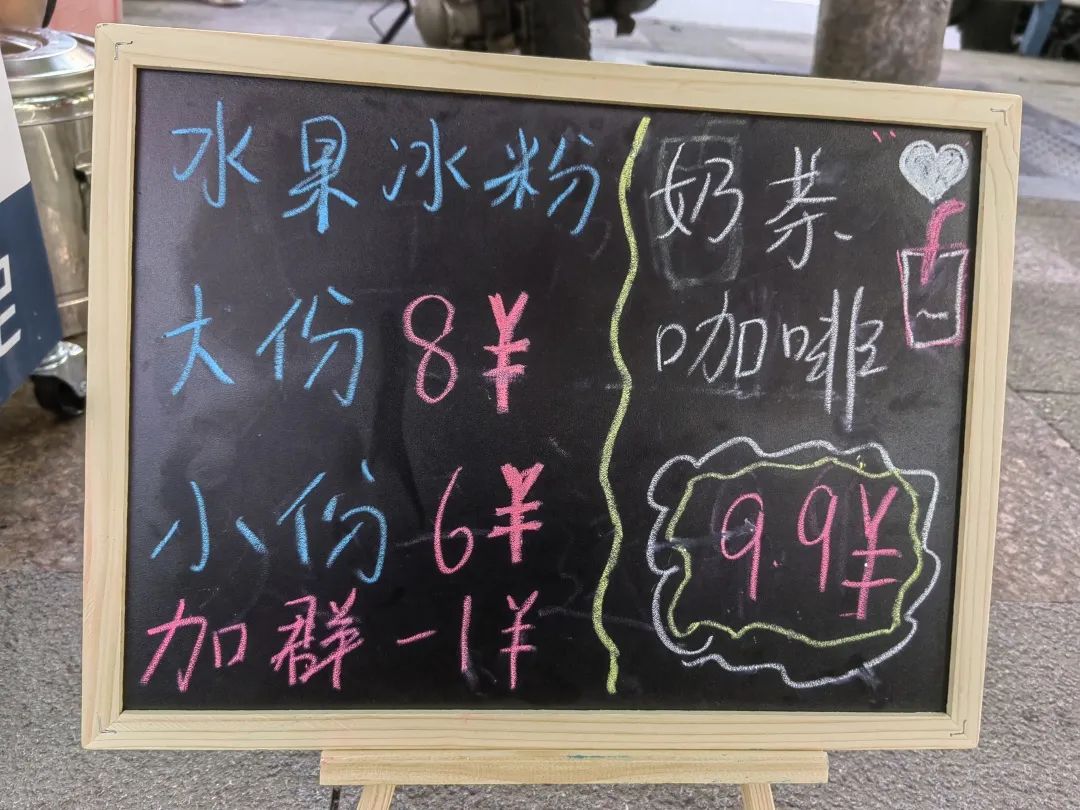 水果冰粉
大份 8¥
小份 6¥
加群 -1¥
奶茶
咖啡
9.9¥